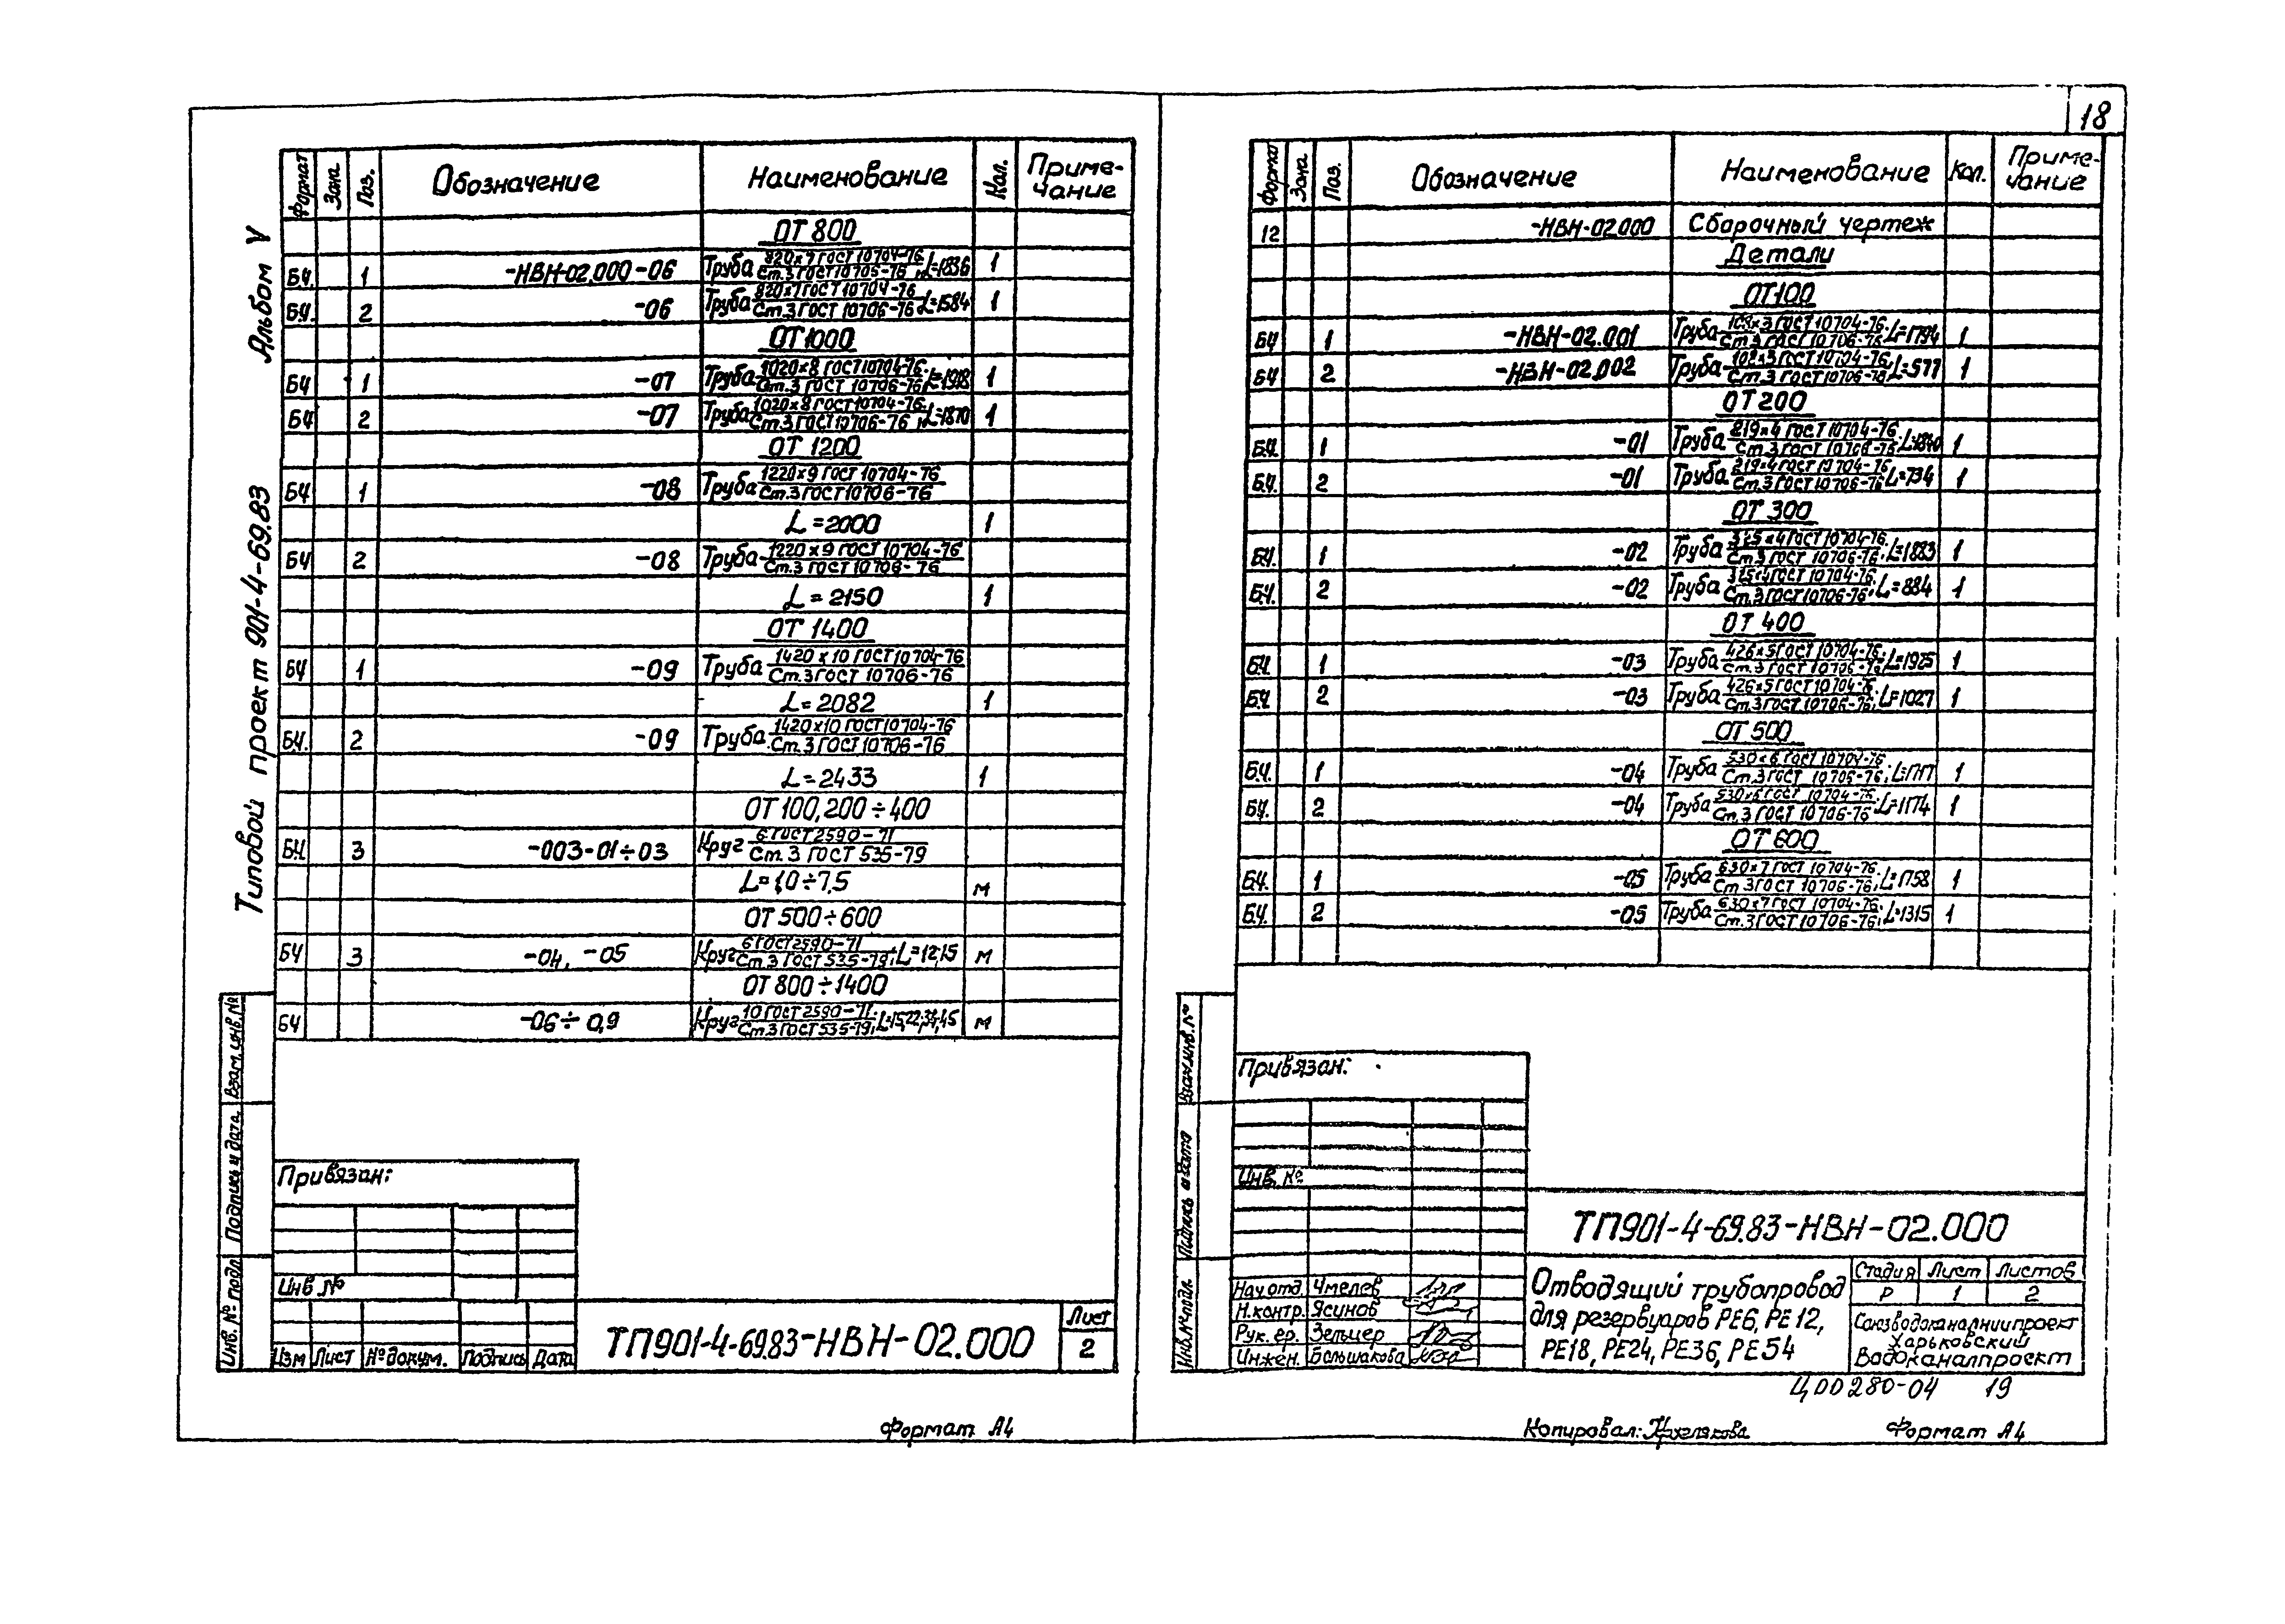 18
Альбом V
Типовой проект 901-4-69.83
Формат Зона Поз. Обозначение Наименование Кол. Приме-чание
ОТ 800
БЧ. 1 -НВН-02.000-06 Труба 820х7 ГОСТ 10704-76 / Ст.3 ГОСТ 10706-76, L=1836 1
БЧ. 2 -06 Труба 820х7 ГОСТ 10704-76 / Ст.3 ГОСТ 10706-76, L=1584 1
ОТ 1000
БЧ 1 -07 Труба 1020х8 ГОСТ 10704-76 / Ст.3 ГОСТ 10706-76, L=1918 1
БЧ 2 -07 Труба 1020х8 ГОСТ 10704-76 / Ст.3 ГОСТ 10706-76, L=1870 1
ОТ 1200
БЧ 1 -08 Труба 1220х9 ГОСТ 10704-76 / Ст.3 ГОСТ 10706-76
L=2000 1
БЧ 2 -08 Труба 1220х9 ГОСТ 10704-76 / Ст.3 ГОСТ 10706-76
L=2150 1
ОТ 1400
БЧ 1 -09 Труба 1420х10 ГОСТ 10704-76 / Ст.3 ГОСТ 10706-76
L=2082 1
БЧ. 2 -09 Труба 1420х10 ГОСТ 10704-76 / Ст.3 ГОСТ 10706-76
L=2433 1
ОТ 100,200÷400
БЧ 3 -003-01÷03 Круг 6 ГОСТ 2590-71 / Ст.3 ГОСТ 535-79
L=1,0÷7.5 м
ОТ 500÷600
БЧ 3 -04, -05 Круг 6 ГОСТ 2590-71 / Ст.3 ГОСТ 535-79, L=12;15 м
ОТ 800÷1400
БЧ -06÷0,9 Круг 10 ГОСТ 2590-71 / Ст.3 ГОСТ 535-79, м
Взам. инв. №
Подпись и дата
Инв. № подл.
Привязан:
Инв. №
Изм Лист № докум. Подпись Дата
ТП901-4-69.83-НВН-02.000
Лист
2
Формат А4
Формат Зона Поз. Обозначение Наименование Кол. Приме-чание
12 -НВН-02.000 Сборочный чертеж
Детали
ОТ100
БЧ 1 -НВН-02.001 Труба 108х3 ГОСТ 10704-76 / Ст.3 ГОСТ 10706-76, L=1794 1
БЧ 2 -НВН-02.002 Труба 108х3 ГОСТ 10704-76 / Ст.3 ГОСТ 10706-76, L=577 1
ОТ 200
БЧ. 1 -01 Труба 219х4 ГОСТ 10704-76 / Ст.3 ГОСТ 10706-76, L=1840 1
БЧ. 2 -01 Труба 219х4 ГОСТ 10704-76 / Ст.3 ГОСТ 10706-76, L=734 1
ОТ 300
БЧ. 1 -02 Труба 325х4 ГОСТ 10704-76 / Ст.3 ГОСТ 10706-76, L=1883 1
БЧ. 2 -02 Труба 325х4 ГОСТ 10704-76 / Ст.3 ГОСТ 10706-76, L=884 1
ОТ 400
БЧ. 1 -03 Труба 426х5 ГОСТ 10704-76 / Ст.3 ГОСТ 10706-76, L=1925 1
БЧ. 2 -03 Труба 426х5 ГОСТ 10704-76 / Ст.3 ГОСТ 10706-76, L=1027 1
ОТ 500
БЧ. 1 -04 Труба 530х6 ГОСТ 10704-76 / Ст.3 ГОСТ 10706-76, L=1717 1
БЧ. 2 -04 Труба 530х6 ГОСТ 10704-76 / Ст.3 ГОСТ 10706-76, L=1174 1
ОТ 600
БЧ. 1 -05 Труба 630х7 ГОСТ 10704-76 / Ст.3 ГОСТ 10706-76, L=1758 1
БЧ. 2 -05 Труба 630х7 ГОСТ 10704-76 / Ст.3 ГОСТ 10706-76, L=1315 1
Взам. инв. №
Подпись и дата
Инв. № подл.
Привязан:
Инв. №
ТП901-4-69.83-НВН-02.000
Нач отд. Чмелев
Н.контр. Ясинов
Рук. гр. Зельцер
Инжен. Большакова
Отводящий трубопровод
для резервуаров РЕ6, РЕ12,
РЕ18, РЕ24, РЕ36, РЕ54
Стадия Лист Листов
Р 1 2
Союзводоканалниипроект
Харьковский
Водоканалпроект
Ц00280-04 19
Копировал: Круглякова
Формат А4